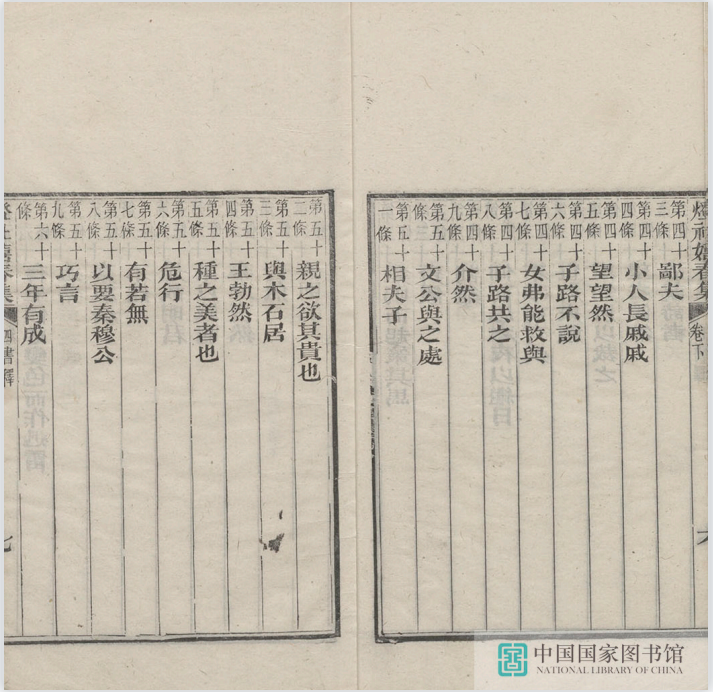 燈社嬉春集 卷下
第四十三條 鄙夫
第四十四條 小人長戚戚
第四十五條 望望然
第四十六條 子路不說
第四十七條 女弗能救與
第四十八條 子路共之
第四十九條 介然
第五十條 文公與之處
第五十一條 相夫子
第五十二條 親之欲其貴也
第五十三條 與木石居
第五十四條 王勃然
第五十五條 種之美者也
第五十六條 危行
第五十七條 有若無
第五十八條 以要秦穆公
第五十九條 巧言
第六十條 三年有成
燈社嬉春集 四書釋 七
中国国家图书馆
NATIONAL LIBRARY OF CHINA